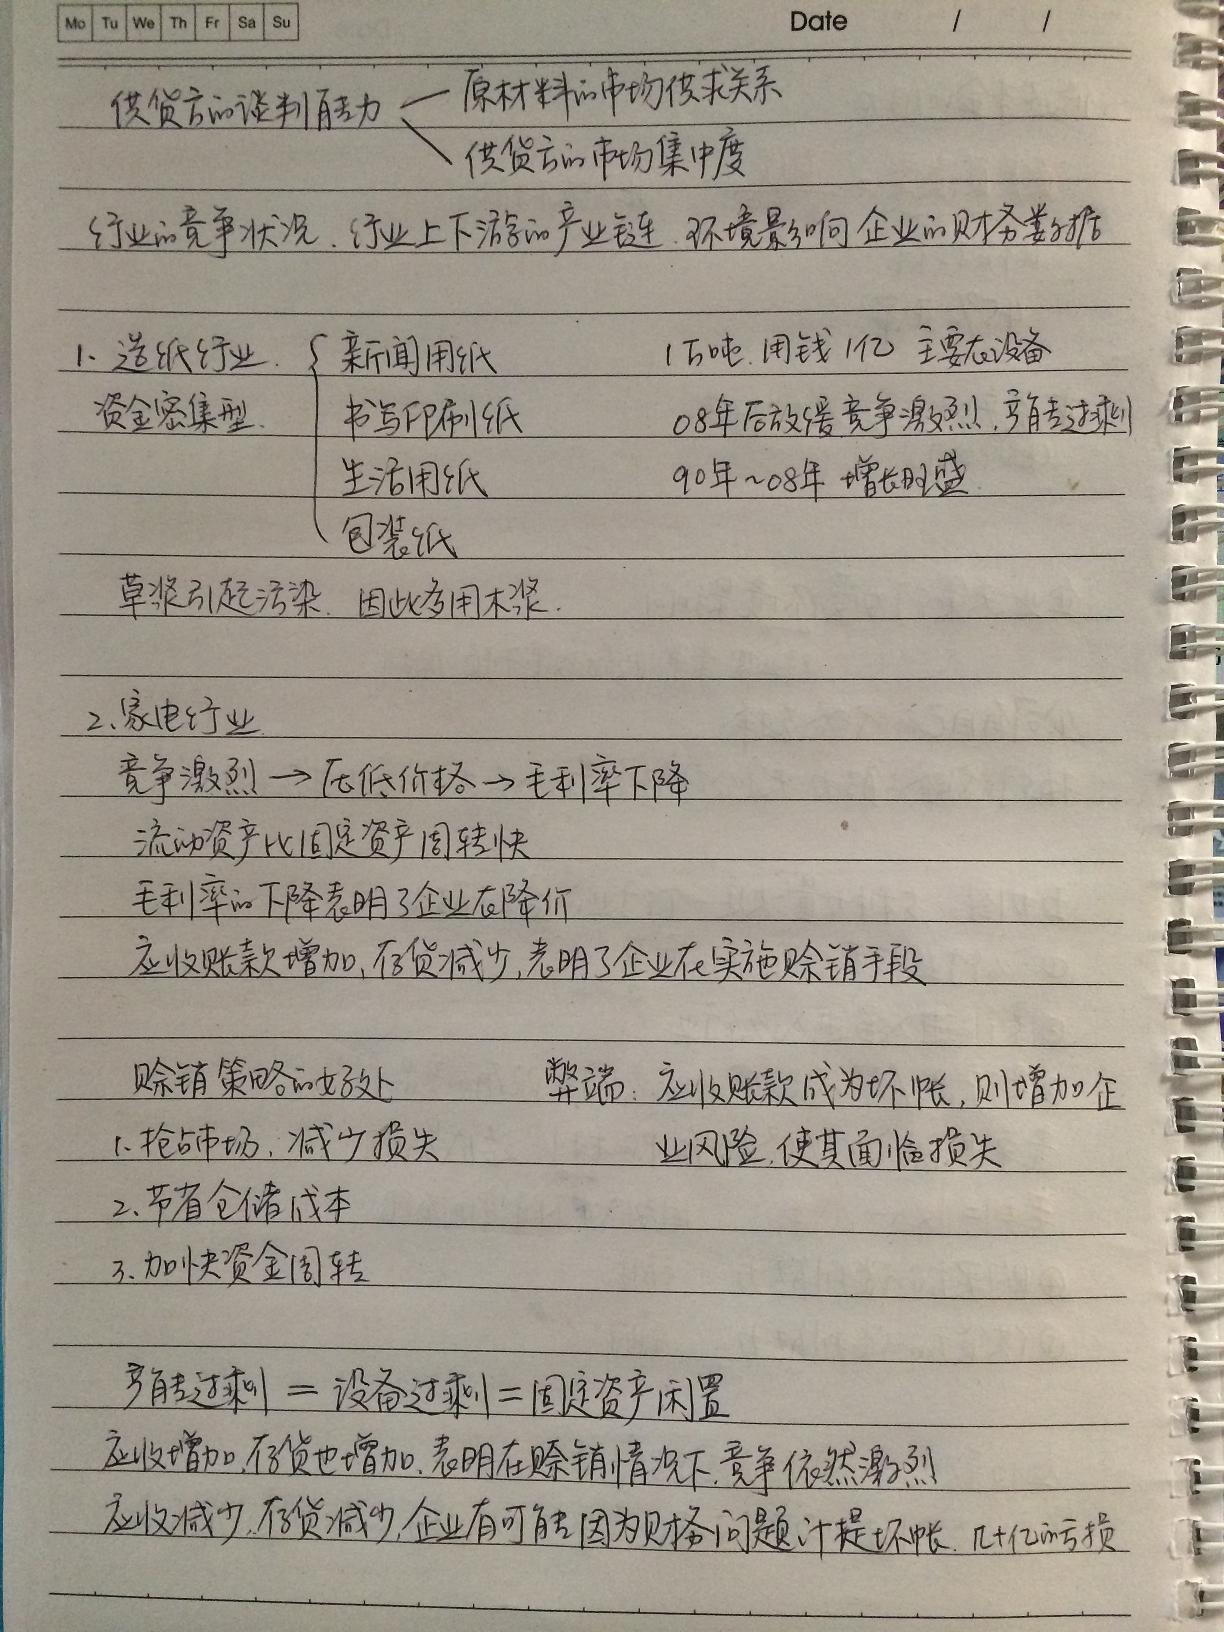 Mo Tu We Th Fr Sa Su
Date / /
供货方的谈判能力
原材料的市场供求关系
供货方的市场集中度
行业的竞争状况、行业上下游的产业链、环境影响企业的财务数据
1、造纸行业、 新闻用纸 1万吨、用钱1亿 主要在设备
资金密集型、 书写印刷纸 08年后放缓、竞争激烈、产能过剩
生活用纸 90年~08年 增长旺盛
包装纸
草浆引起污染、因此多用木浆.
2、家电行业
竞争激烈→压低价格→毛利率下降
流动资产比固定资产周转快
毛利率的下降表明了企业在降价
应收账款增加,存货减少,表明了企业在实施赊销手段
赊销策略的好处 弊端:应收账款成为坏帐,则增加企
1、抢占市场、减少损失 业风险,使其面临损失
2、节省仓储成本
3、加快资金周转
产能过剩=设备过剩=固定资产闲置
应收增加,存货也增加、表明在赊销情况下,竞争依然激烈
应收减少,存货减少,企业有可能因为财务问题计提坏帐、几十亿的亏损